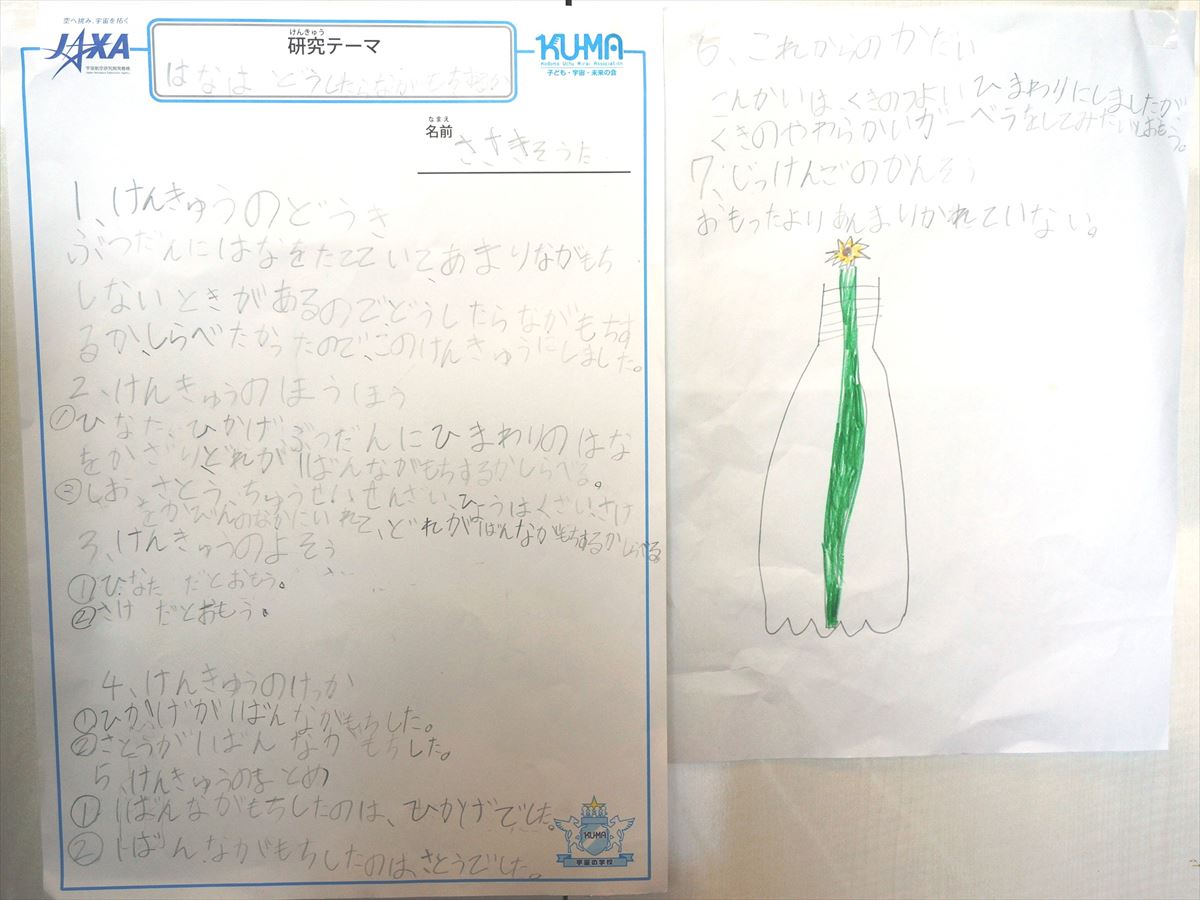 空へ挑み、宇宙を拓く
JAXA
宇宙航空研究開発機構
Japan Aerospace Exploration Agency
けんきゅう
研究テーマ
はなは どうしたらながもちするか
KU-MA
Kodomo Uchu Mirai Association
子ども・宇宙・未来の会
なまえ
名前
ささきそうた
1、けんきゅうのどうき
ぶつだんにはなをたてていて、あまりながもち
しないときがあるのでどうしたらながもちす
るか、しらべたかったので、このけんきゅうにしました。
2、けんきゅうのほうほう
①ひなた、ひかげ、ぶつだんにひまわりのはな
をかざりどれが1ばんながもちするかしらべる。
②しお、さとう、ちゅうせいせんざい、ひょうはくざい、さけ
をかびんのなかにいれて、どれが1ばんながもちするかしらべる
3、けんきゅうのよそう
①ひなた だとおもう。
②さけ だとおもう。
4、けんきゅうのけっか
①ひかげが1ばんながもちした。
②さとうが1ばんながもちした。
5、けんきゅうのまとめ
①1ばんながもちしたのは、ひかげでした。
②1ばんながもちしたのは、さとうでした。
KU-MA
宇宙の学校
6、これからのかだい
こんかいは、くきのつよいひまわりにしましたが、
くきのやわらかいガーベラをしてみたいとおもう。
7、じっけんごのかんそう
おもったよりあんまりかれていない。